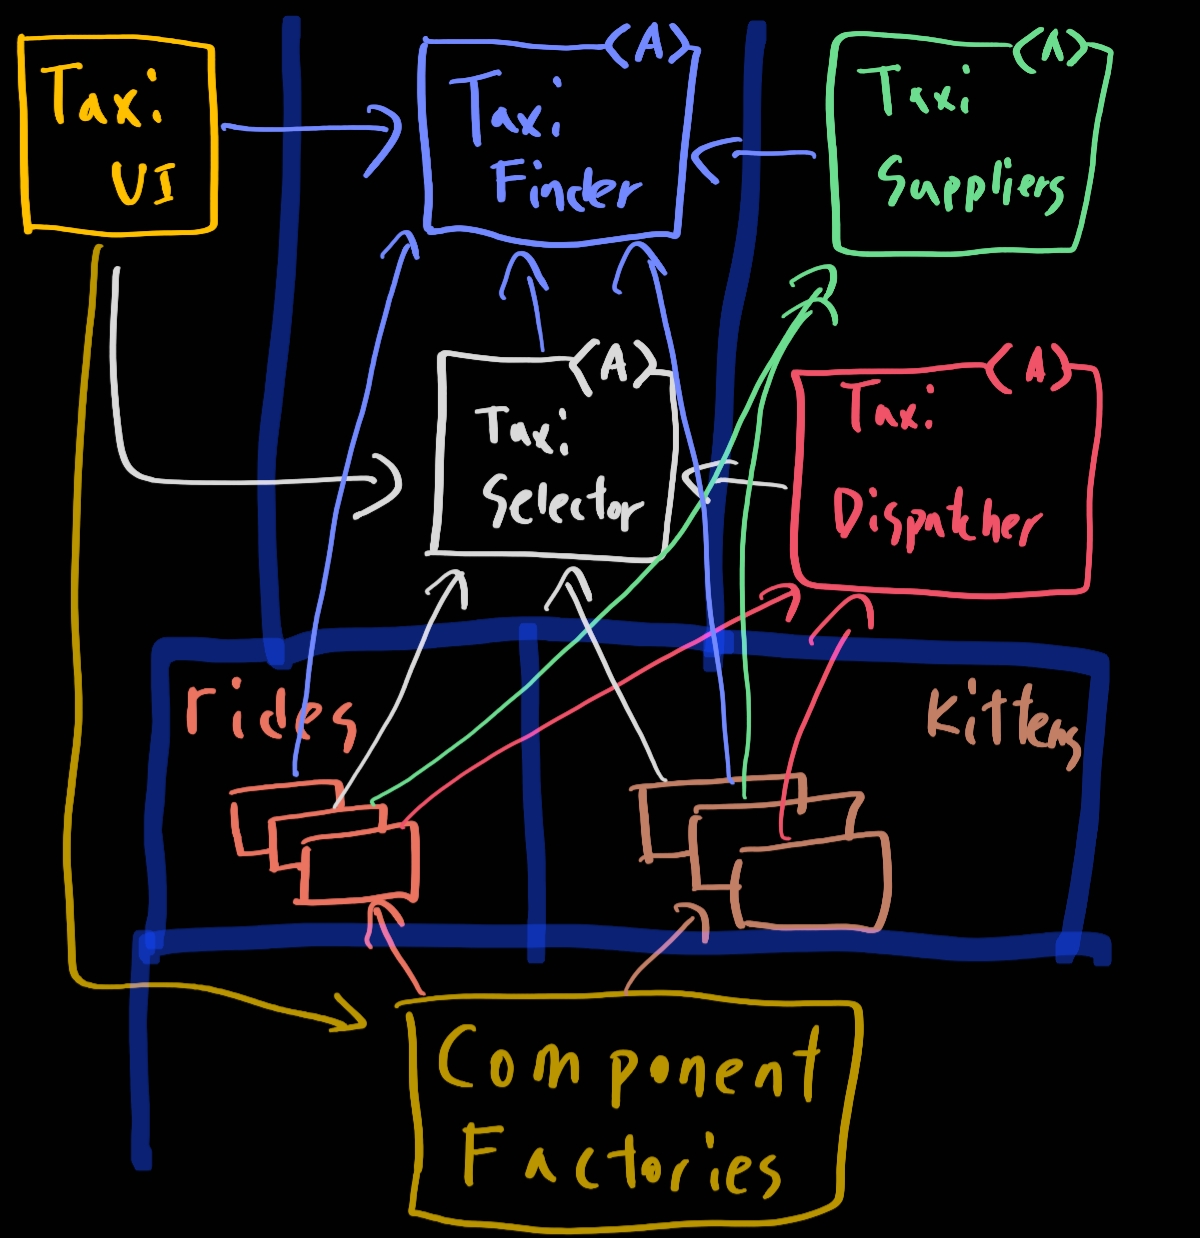 Taxi
UI
<A>
Taxi
Finder
<A>
Taxi
Suppliers
<A>
Taxi
Selector
<A>
Taxi
Dispatcher
rides
Kittens
Component
Factories